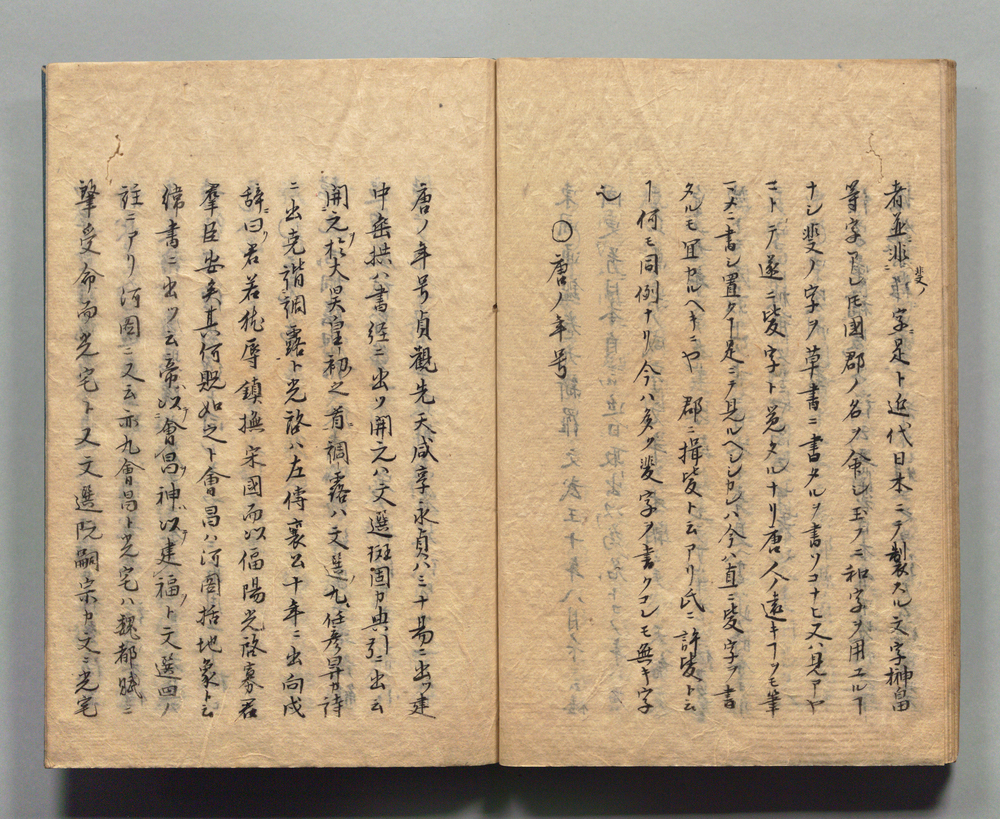 者並非字足ト近代日本ニテ製スル文字榊畠
等字アレ𪜈國郡ノ名ヲ命シ玉フニ和字ヲ用エルヿ
ナシ斐ノ字ヲ草書ニ書タルヲ書ソコナヒ又ハ見アヤ
マトテ遂ニ字ト覚タルナリ唐人ノ遠キフツモ筆
ヲメニ書シ置クヿ足ニテ見ルヘシシカレハ今ハ直ニ字ヲ書
タルモ冝カルヘキニヤ郡ニ揖ト云アリ氏ニ許ト云
ヿ何モ同例ナリ今ハ多ク斐字ヲ書クコレモ無キ字
也
〇唐ノ年号
唐ノ年号貞觀先天咸享永貞ハ三十易ニ出ツ建
中垂拱ハ書経ニ出ツ開元ハ文選班固カ典引ニ出云
開元於大昊皇初之首調露ハ文選九任彦昇カ詩
ニ出克諧調露ト光啓ハ左傳襄公十年ニ出向戌
辞曰君若犹辱鎮撫宋國而以偪陽光啓寡君
羣臣安矣其何貺如之ト會昌ハ河圖括地象ト云
緯書ニ出ツ云帝以會昌神以建福ト文選四ノ
註ニアリ河圖ニ又云赤九會昌ト光宅ハ魏都賦ニ
肇受命而光宅ト又文選阮嗣宗カ文ニ光宅